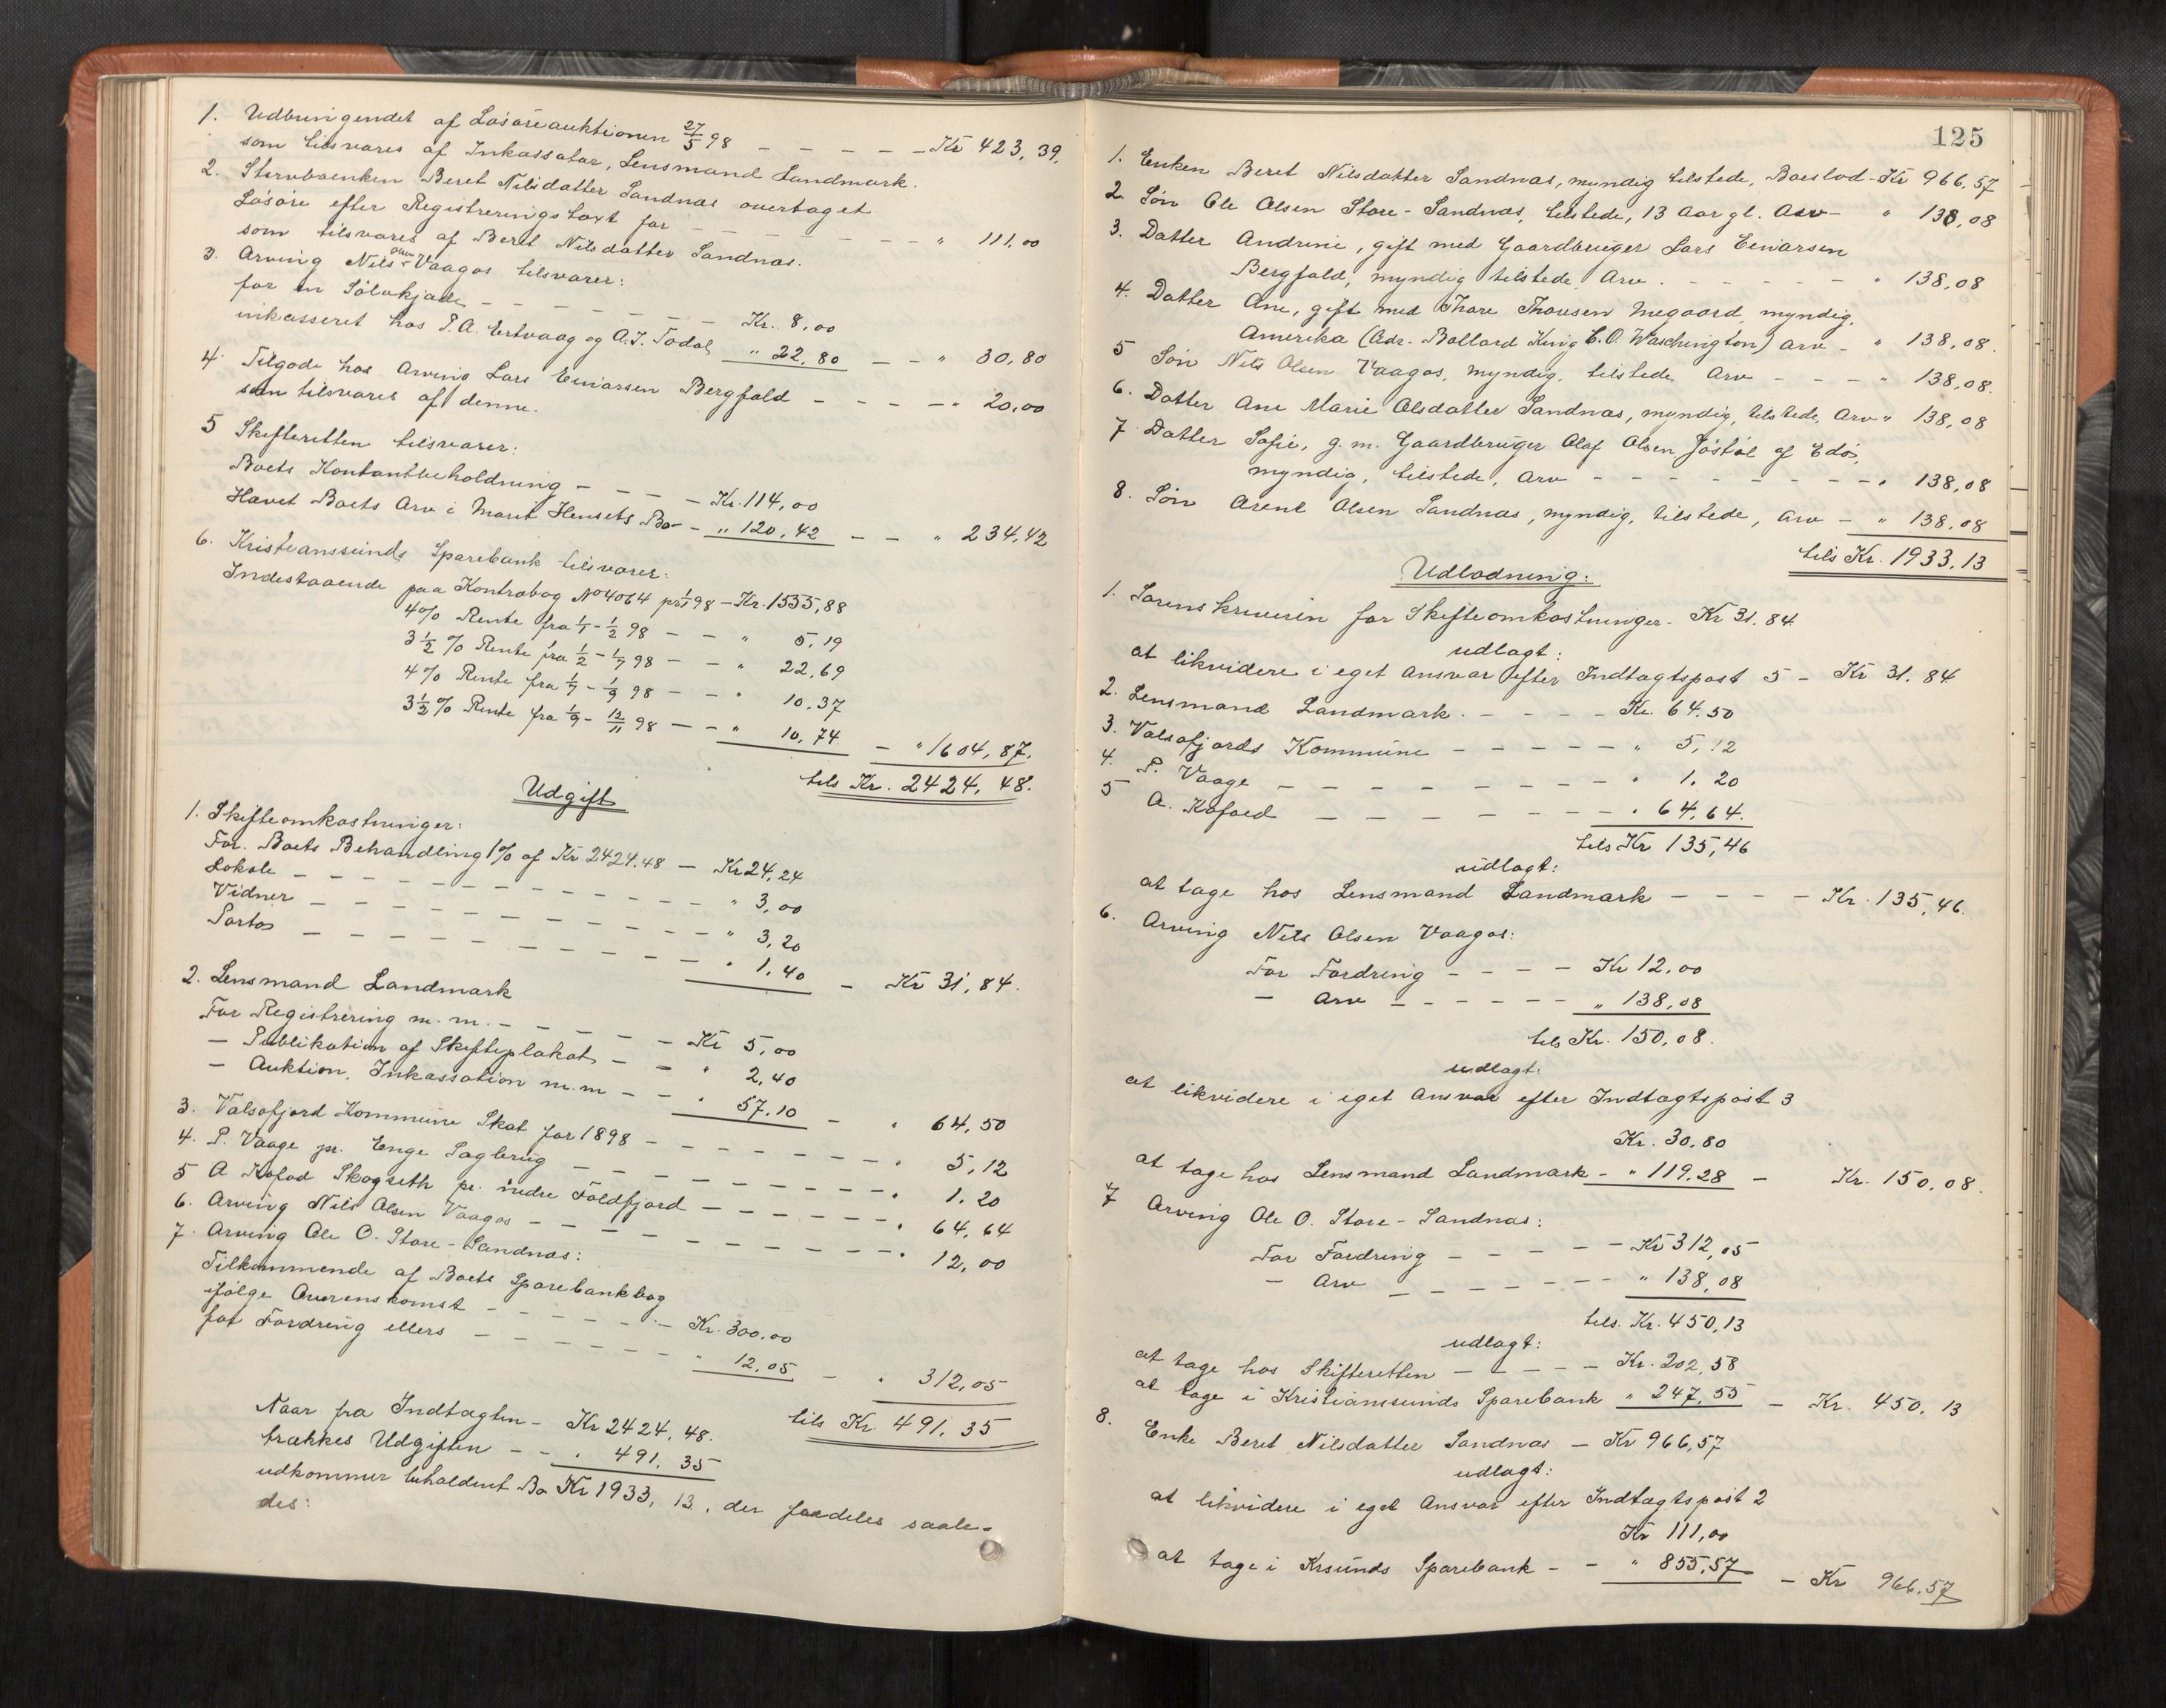 1. Udbringendet af Løsøreauktionen 27/5 98 - - - - - Kr 423,39.
som tilsvares af Inkassator, Lensmand Landmark.
2. Stervboenken Beret Nilsdatter Sandnæs overtaget
Løsøre efter Registreringstaxt for - - - - - - - - " 111,00
som tilsvares af Beret Nilsdatter Sandnæs.
3. Arving Nils Olsen Vaagos tilsvarer:
for en Sølvkjæde - - - - - - Kr. 8,00
inkasseret hos P.A. Ertvaag og A.J. Todal " 22,80 - - " 30,80
4. Tilgode hos Arving Lars Einarsen Bergfald - - - - " 20,00
som tilsvares af denne.
5 Skifteretten tilsvarer:
Boets Kontantbeholdning - - - - Kr. 114,00
Hævet Boets Arv i Marit Hensets Bo - " 120,42 - - " 234,42
6. Kristianssunds Sparebank tilsvarer:
Indestaaende paa Kontrabog No 4064 pr 1/1 98 - Kr. 1555,88
4% Rente fra 1/1 - 1/2 98 - - " 5,19
3 1/2 % Rente fra 1/2 - 1/7 98 - - " 22,69
4% Rente fra 1/7 - 1/9 98 - - " 10,37
3 1/2 % Rente fra 1/9 - 12/11 98 - - " 10,74 - " 1604,87.
tils Kr. 2424,48.
Udgift
1. Skifteomkostninger:
For Boets Behandling 1% af Kr 2424.48 - Kr 24,24
Lokale - - - - - - - - - - " 3,00
Vidner - - - - - - - - - - " 3,20
Portos - - - - - - - - - " 1,40 - Kr 31,84.
2. Lensmand Landmark
For Registrering m.m. - - - - - Kr 5,00
- Publikation af Skifteplakat - - " 2,40
- Auktion, Inkassation m.m - - " 57,10 - " 64,50
3. Valsøfjord Kommune Skat for 1898 - - - - - - - " 5,12
4. P. Vaage pr. Enge Sagbrug - - - - - - - - " 1.20
5 A Kofod Skogseth pr. indre Foldfjord - - - - - - " 64,64
6. Arving Nils Olsen Vaagos - - - - - - - - - " 12,00
7. Arving Ole O. Store-Sandnæs:
Tilkommende af Boets Sparebankbog
ifølge Overenskomst - - - - - - Kr. 300,00
for Fordring ellers - - - - - - " 12,05 - " 312,05
tils Kr. 491,35
Naar fra Indtægten - Kr 2424,48.
trækkes Udgiften - - " 491,35
udkommer beholdent Bo Kr 1933,13, der fordeles saale-
des:
125
1. Enken Beret Nilsdatter Sandnæs, myndig tilstede, Boeslod - Kr 966,57
2. Søn Ole Olsen Store-Sandnæs, tilstede, 13 Aar gl. Arv - " 138,08
3. Datter Andrine, gift med Gaardbruger Lars Einarsen
Bergfald, myndig tilstede, Arv - - - - - " 138,08
4. Datter Ane, gift med Thore Thoresen Megaard, myndig,
Amerika (Adr. Ballard King C.O. Waschington) Arv - " 138,08.
5 Søn Nils Olsen Vaagos, myndig, tilstede Arv - - - " 138,08.
6. Datter Ane Marie Olsdatter Sandnæs, myndig, tilstede, Arv " 138,08
7 Datter Sofie, g.m. Gaardbruger Olaf Olsen Jøstøl af Edø,
myndig, tilstede, Arv - - - - - - - - " 138,08
8. Søn Arent Olsen Sandnæs, myndig, tilstede, Arv - " 138,08
tils Kr. 1933,13
Udlodning:
1. Sorenskriveren for Skifteomkostninger - Kr 31.84
udlagt:
at likvidere i eget Ansvar efter Indtægtspost 5 - Kr 31.84
2. Lensmand Landmark. - - - - Kr. 64,50
3. Valsøfjords Kommune - - - - - " 5,12
4. P. Vaage - - - - - - - - " 1.20
5 A. Kofoed - - - - - - - " 64,64.
tils Kr 135,46
udlagt:
at tage hos Lensmand Landmark - - - - Kr. 135,46.
6. Arving Nils Olsen Vaagos:
For Fordring - - - - Kr 12,00
- Arv - - - - - - " 138,08
tils Kr. 150,08.
udlagt:
at likvidere i eget Ansvar efter Indtægtspost 3
Kr. 30,80
at tage hos Lensmand Landmark - " 119,28 - Kr. 150,08.
7 Arving Ole O. Store-Sandnæs:
For Fordring - - - - - Kr 312,05
- Arv - - - - - - " 138,08
tils. Kr. 450,13
udlagt:
at tage hos Skifteretten - - - - Kr. 202,58
at tage i Kristianssunds Sparebank " 247,55 - Kr. 450,13
8. Enke Beret Nilsdatter Sandnæs - Kr 966,57
udlagt:
at likvidere i eget Ansvar efter Indtægtspost 2
Kr 111,00
at tage i Krsunds Sparebank - - " 855,57 - Kr 966,57